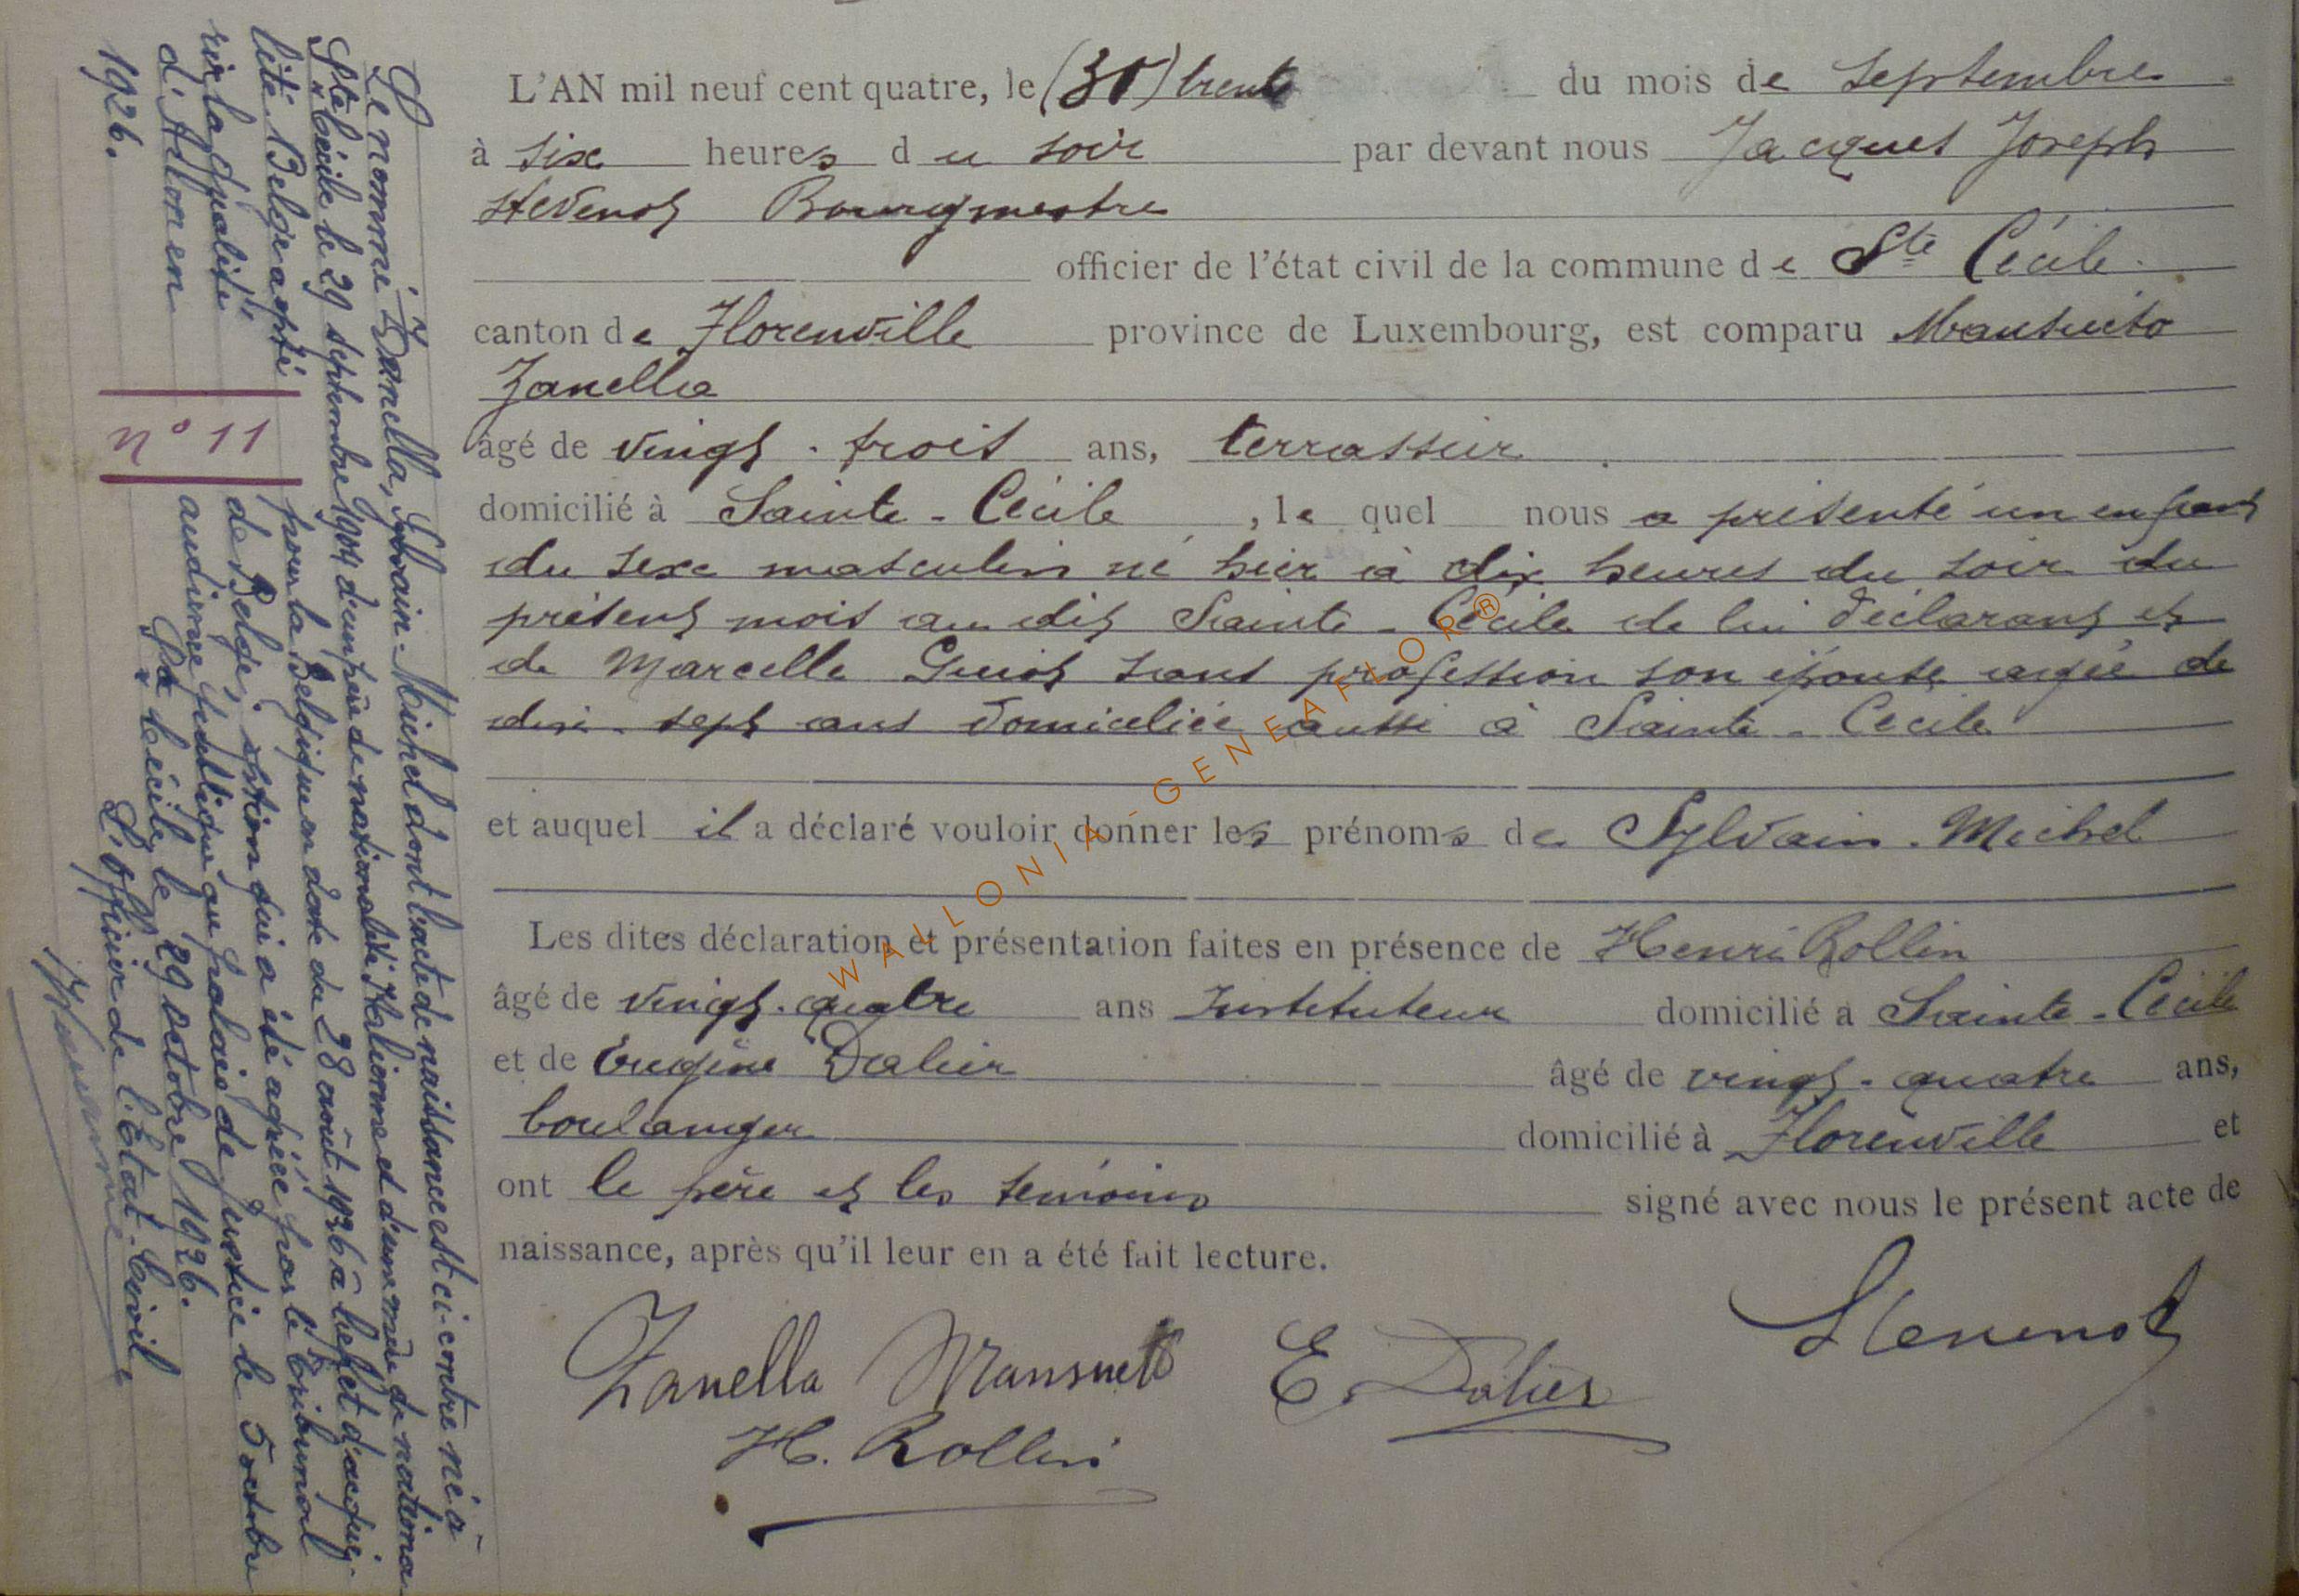 L'AN mil neuf cent quatre, le (30) trente du mois de septembre
à six heures du soir par devant nous Jacques Joseph
Stevenot Bourgmestre
officier de l'état civil de la commune de Ste Cécile
canton de Florenville province de Luxembourg, est comparu Mansueto
Zanella
âgé de vingt-trois ans, terrassier
domicilié à Sainte-Cécile, lequel nous a présenté un enfant
du sexe masculin né hier à dix heures du soir du
présent mois au dit Sainte-Cécile de lui déclarant et
de Marcelle Guiot sans profession son épouse agée de
dix-sept ans domiciliée aussi à Sainte-Cécile
et auquel il a déclaré vouloir donner les prénoms de Sylvain-Michel
Les dites déclaration et présentation faites en présence de Henri Rollin
âgé de vingt-quatre ans Instituteur domicilié a Sainte-Cécile
et de Eugène Dalier âgé de vingt-quatre ans,
boulanger domicilié à Florenville et
ont le père et les témoins signé avec nous le présent acte de
naissance, après qu'il leur en a été fait lecture.
Zanella Mansueto E. Dalier Stevenot
H. Rollin
Le nommé Zanella, Sylvain-Michel dont l'acte de naissance est ci-contre né à
Ste Cécile le 29 septembre 1904 d'un père de nationalité Italienne et d'une mère de nationa-
lité Belge a opté pour la Belgique en date du 28 août 1926 à l'effet d'acqué-
rir la qualité de Belge, option qui a été agréée par le Tribunal
d'Arlon en audience publique au palais de Justice le 5 octobre
1926. Ste Cécile, le 29 octobre 1926.
L'officier de l'Etat-Civil
n° 11
WALLONIA-GENEAFLOR®